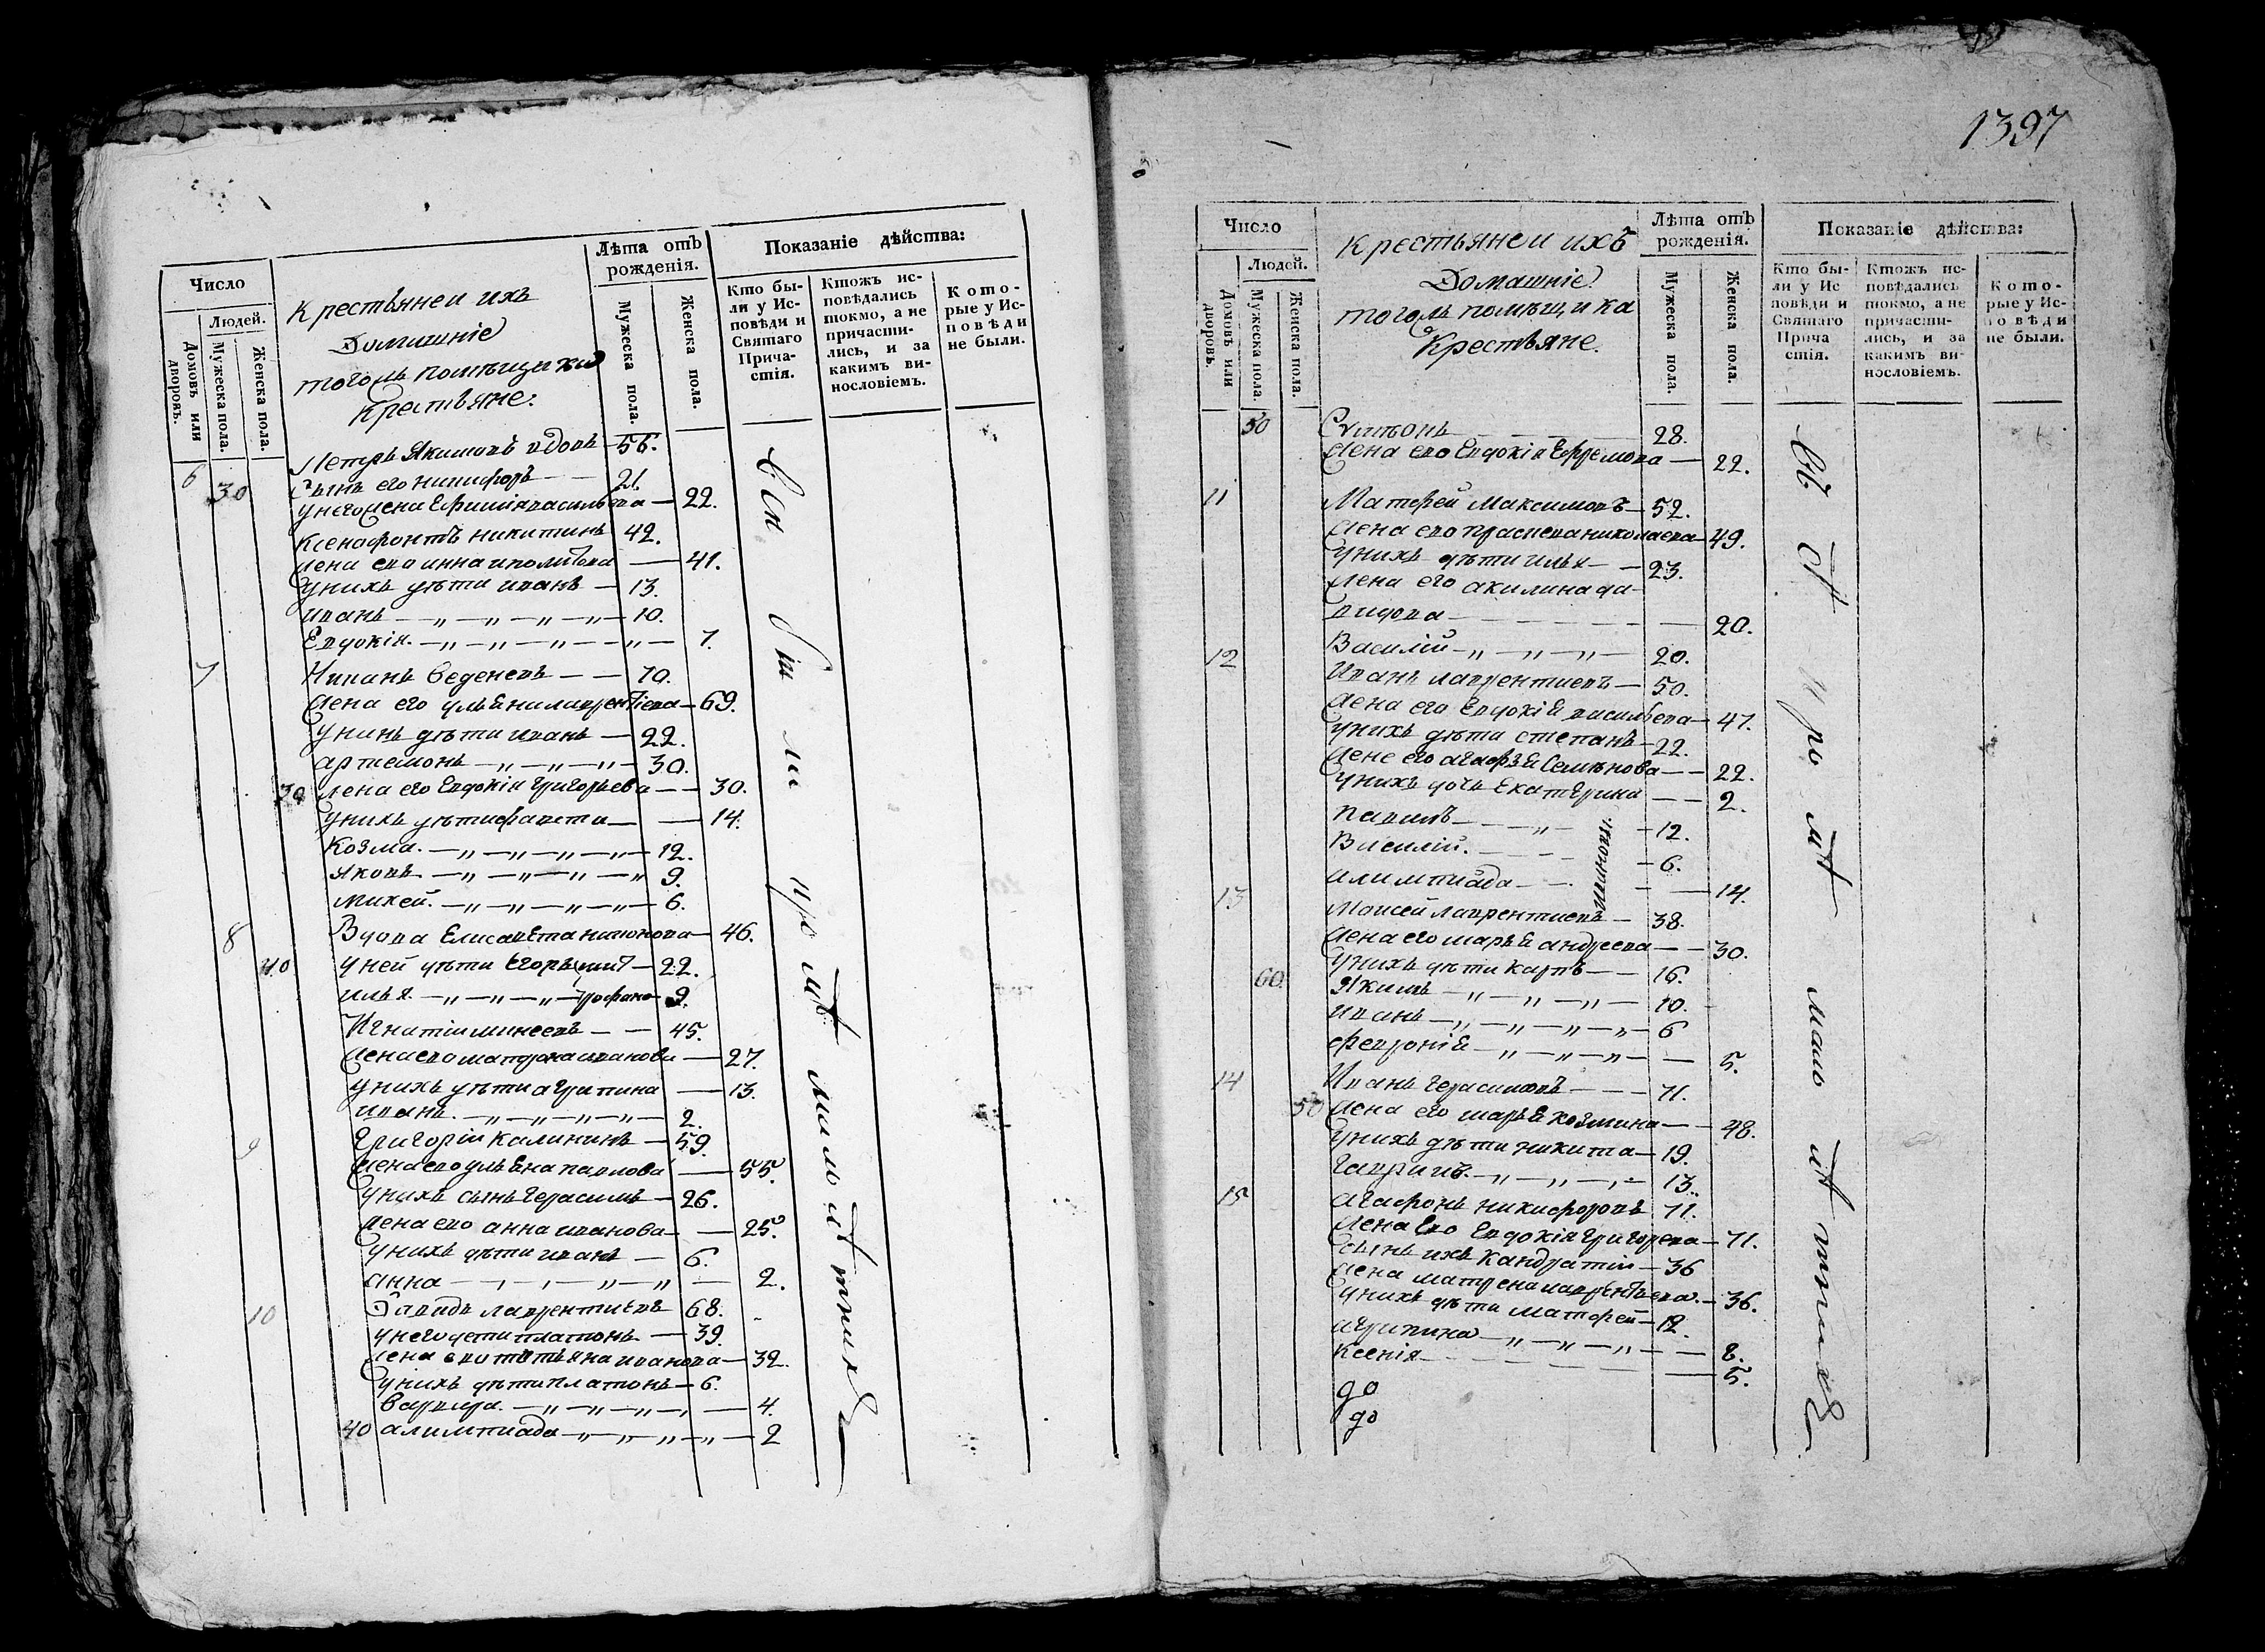 Число
Людей.
Домовъ или дворовъ.
Мужеска пола.
Женска пола.
Крестьяне и ихъ
Домашніе
тогожъ помѣщика
Крестьяне:
Лѣта отъ рожденія.
Мужеска пола.
Женска пола.
Показаніе дѣйства:
Кто были у Исповѣди и Святаго Причастія.
Ктожъ исповѣдались токмо, а не причастились, и за какимъ винословіемъ.
Которые у Исповѣди не были.
6 Петръ Якимовъ вдовъ 56.
30 Сынъ его никифоръ 21.
у него жена Ефимія васильева 22.
Ксенофонтъ никитинъ 42.
жена ево анна иполитова 41.
у нихъ дѣти иванъ 13.
иванъ 10.
Евдокія 7.
7 70.
жена его ульяна лаврентіева 69.
дѣти иванъ 22.
артемонъ 30.
30 жена его Евдокія Григорьева 30.
у нихъ дѣти 14.
Козма 12.
Яковъ 9.
михей 6.
8 Вдова Елисавета 46.
40 у ней дѣти Егоръ 22.
илья 9.
Игнатіи минеевъ 45.
жена ево матрона иванова 27.
у нихъ дѣти агрипина 13.
иванъ 2.
9 Григоріи калининъ 59.
жена ево ульяна павлова 55.
у нихъ сынъ герасимъ 26.
жена ево анна иванова 25.
у нихъ дѣти иванъ 6.
анна 2.
10 Давидъ лаврентиевъ 68.
у него дети платонъ 39.
жена ево татьяна иванова 32.
у нихъ дѣти платонъ 6.
варвара 4.
40 алимпиада 2
Всѣ
1397
Число
Людей.
Домовъ или дворовъ.
Мужеска пола.
Женска пола.
Крестьяне и ихъ
Домашніе
тогожъ помѣщика
Крестьяне.
Лѣта отъ рожденія.
Мужеска пола.
Женска пола.
Показаніе дѣйства:
Кто были у Исповѣди и Святаго Причастія.
Ктожъ исповѣдались токмо, а не причастились, и за какимъ винословіемъ.
Которые у Исповѣди не были.
50 Симеонъ 28.
жена ево Евдокія Ефремова 22.
11 Матфей Максимовъ 52.
жена ево праскева николаева 49.
у нихъ дѣти илья 23.
жена его акилина да-
видова 20.
Василій 20.
12 Иванъ лаврентиевъ 50.
жена его Евдокія васильева 47.
у нихъ дѣти степанъ 22.
жена его агафья Семенова 22.
у нихъ дочь Екатерина 2.
павелъ 12.
Василій 6.
илимпиада 14.
13 Моисей лаврентиевъ 38.
жена его марья андреева 30.
у нихъ дѣти карпъ 16.
60 Якимъ 10.
иванъ 6
феврония 5.
14 Иванъ герасимовъ 71.
50 жена его марья козмина 48.
у нихъ дѣти никита 19.
гаврилъ 13.
15 агафонъ никифоровъ 71.
жена Ево Евдокія григорева 71.
сынъ ихъ кандратіи 36
жена матрена лаврентьева 36.
у нихъ дѣти матфеи 12.
агрипина 8.
Ксенія 5.
до
до